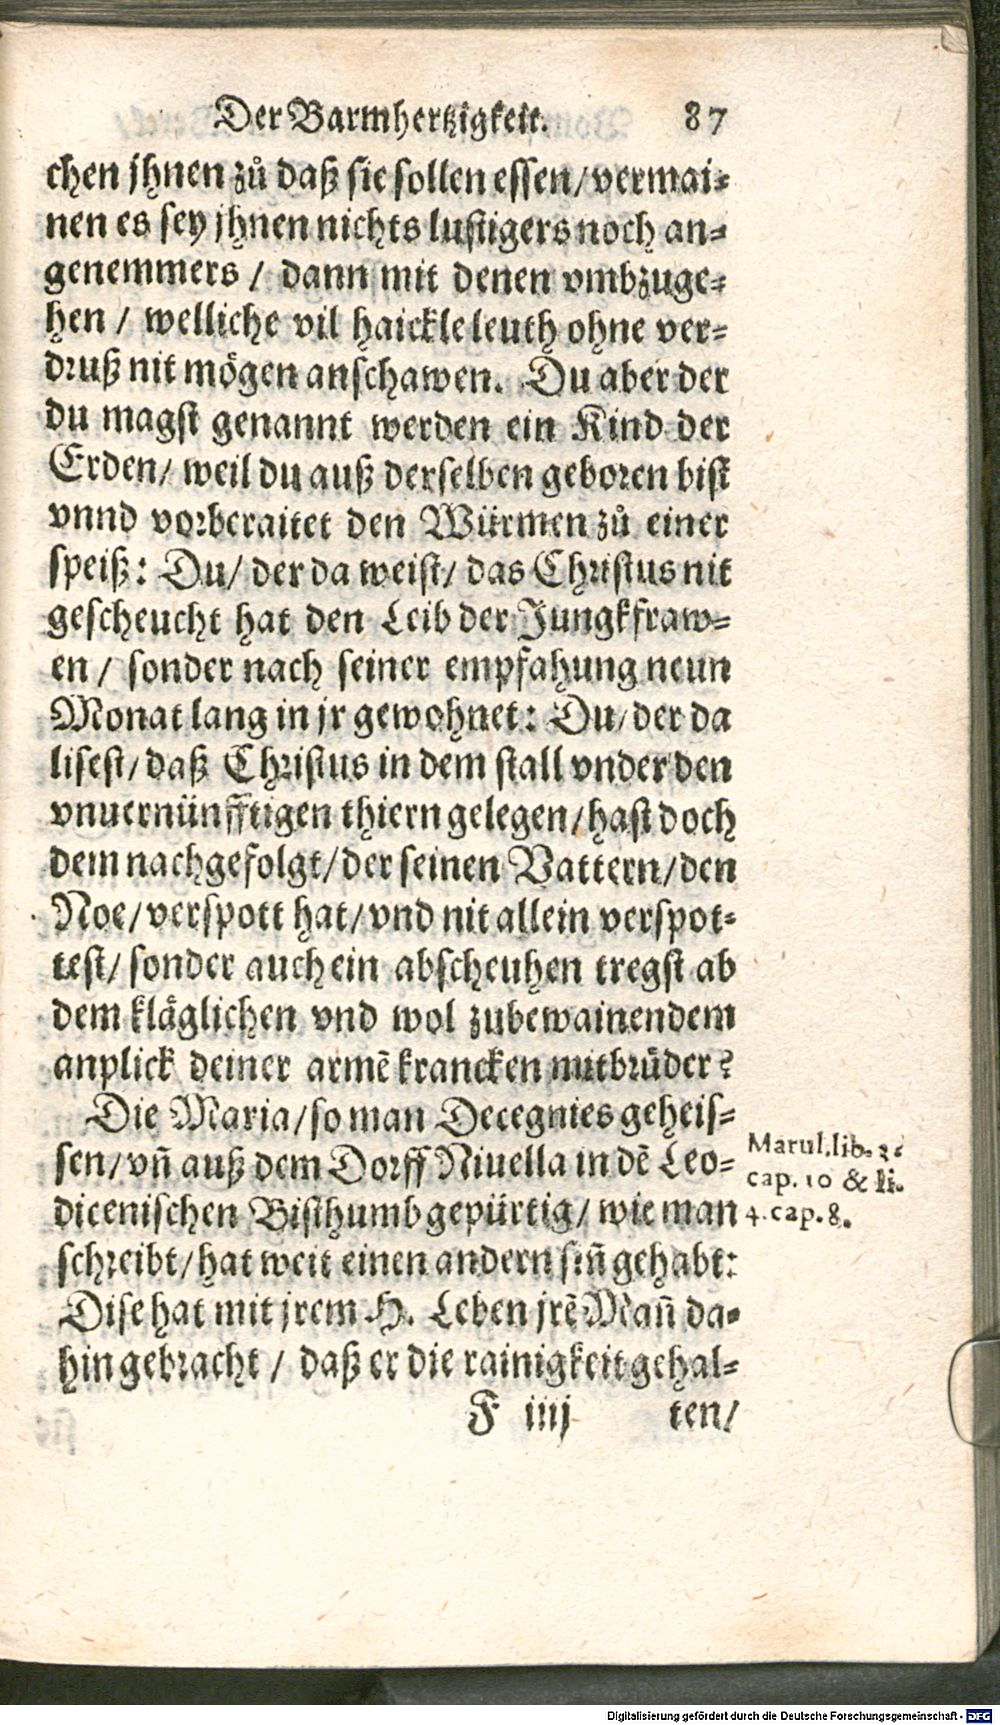 Der Barmhertzigkeit. 87
chen jhnen zů daß sie sollen essen/ vermai-
nen es sey jhnen nichts lustigers noch an-
genemmers / dann mit denen vmbzuge-
hen / welliche vil haickle leuth ohne ver-
druß nit mögen anschawen. Du aber der
du magst genannt werden ein Kind der
Erden/ weil du auß derselben geboren bist
vnnd vorberaitet den Würmen zů einer
speiß: Du/ der da weist/ das Christus nit
gescheucht hat den Leib der Jungkfraw-
en / sonder nach seiner empfahung neun
Monat lang in jr gewohnet: Du/ der da
lisest/ daß Christus in dem stall vnder den
vnuernünfftigen thiern gelegen/ hast doch
dem nachgefolgt/ der seinen Vattern/ den
Noe/ verspott hat/ vnd nit allein verspot-
test/ sonder auch ein abscheuhen tregst ab
dem kläglichen vnd wol zubewainendem
anplick deiner armē krancken mitbrüder?
Die Maria/ so man Decegnies geheis-
sen/ vñ auß dem Dorff Niuella in dē Leo-
dicenischen Bisthumb gepürtig/ wie man
schreibt/ hat weit einen andern siñ gehabt:
Dise hat mit jrem H. Leben jrē Mañ da-
hin gebracht / daß er die rainigkeit gehal-
F iiij ten/
Marul. lib. 3.
cap. 10 & li.
4. cap. 8.
Digitalisierung gefördert durch die Deutsche Forschungsgemeinschaft - DFG